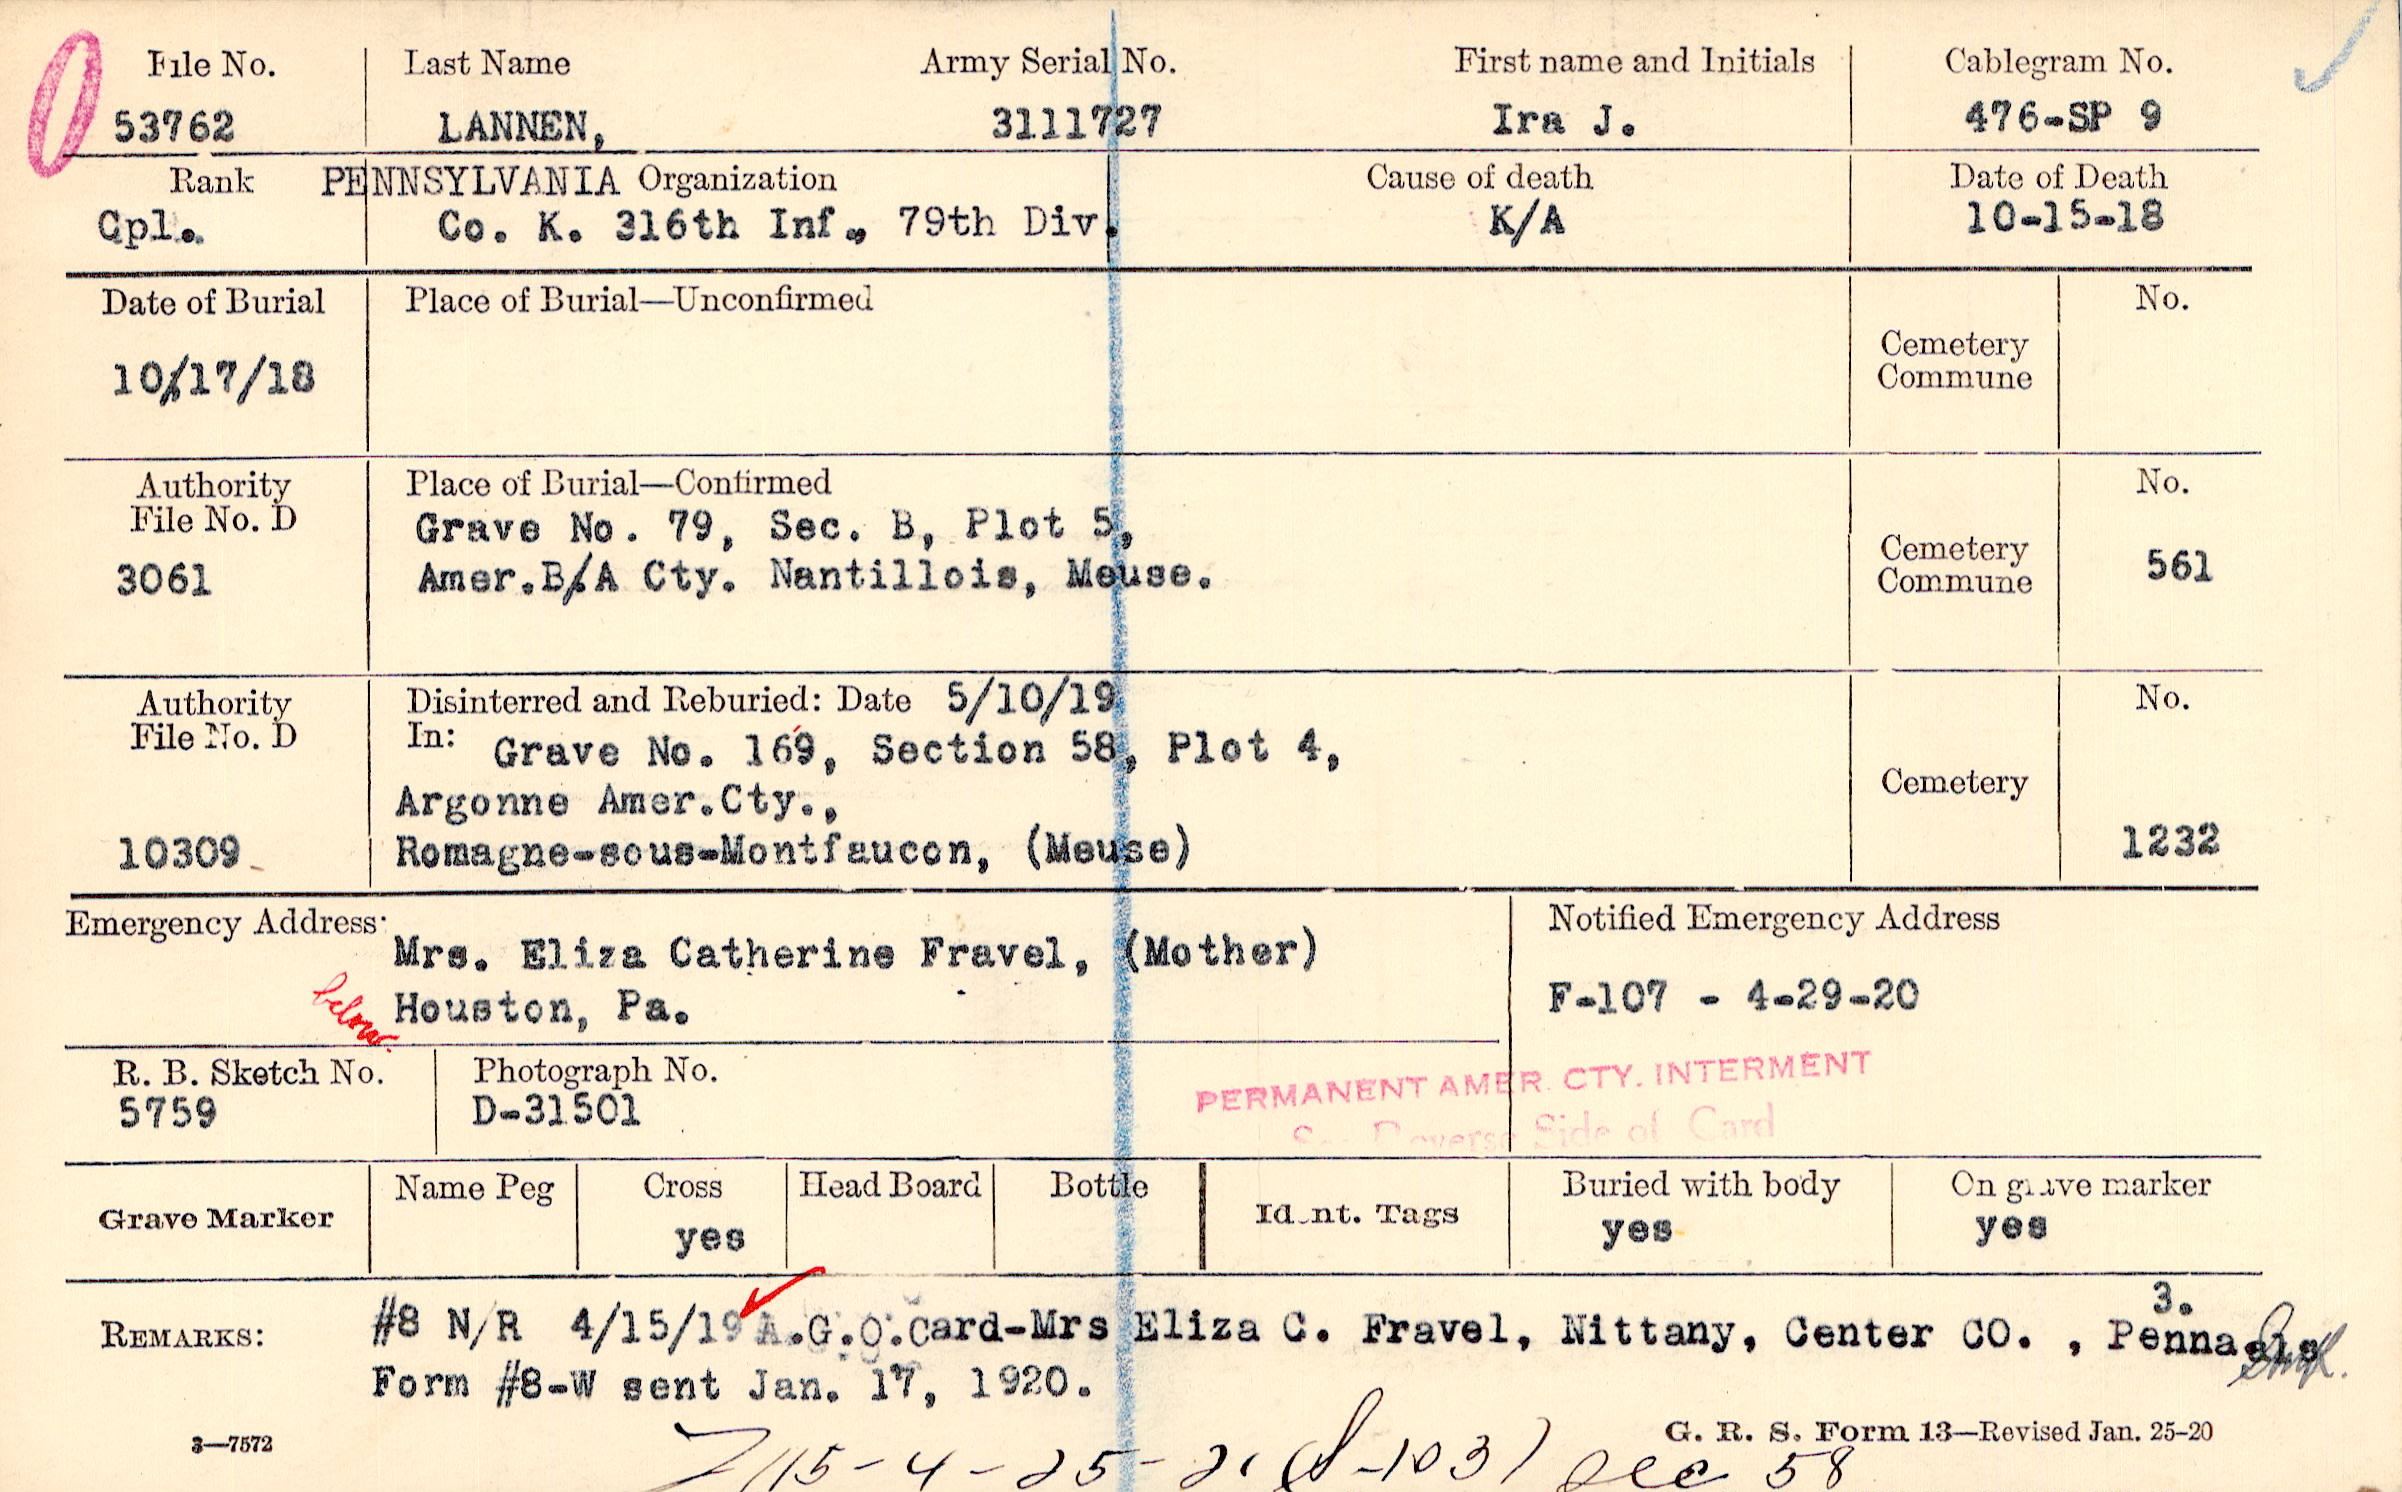 File No. Last Name Army Serial No. First name and Initials Cablegram No.
53762 LANNEN, 3111727 Ira J. 476-SP 9
Rank PENNSYLVANIA Organization Cause of death Date of Death
Cpl. Co. K. 316th Inf., 79th Div. K/A 10-15-18
Date of Burial Place of Burial—Unconfirmed No.
10/17/18
Cemetery
Commune
Authority Place of Burial—Confirmed No.
File No. D
Grave No. 79, Sec. B, Plot 5,
3061 Amer.B/A Cty. Nantillois, Meuse.
Cemetery
Commune 561
Authority Disinterred and Reburied: Date 5/10/19 No.
File No. D In: Grave No. 169, Section 58, Plot 4,
Argonne Amer.Cty., Cemetery
10309 Romagne-sous-Montfaucon, (Meuse) 1232
Emergency Address: Notified Emergency Address
Mrs. Eliza Catherine Fravel, (Mother)
below. Houston, Pa. F-107 - 4-29-20
R. B. Sketch No. Photograph No.
5759 D-31501
PERMANENT AMER. CTY. INTERMENT
Reverse Side of Card
Grave Marker Name Peg Cross Head Board Bottle Ident. Tags Buried with body On grave marker
yes yes yes
3.
REMARKS: #8 N/R 4/15/19 A.G.O.Card-Mrs Eliza C. Fravel, Nittany, Center CO. , Penna
Form #8-W sent Jan. 17, 1920.
3—7572 G. R. S. Form 13—Revised Jan. 25-20
58